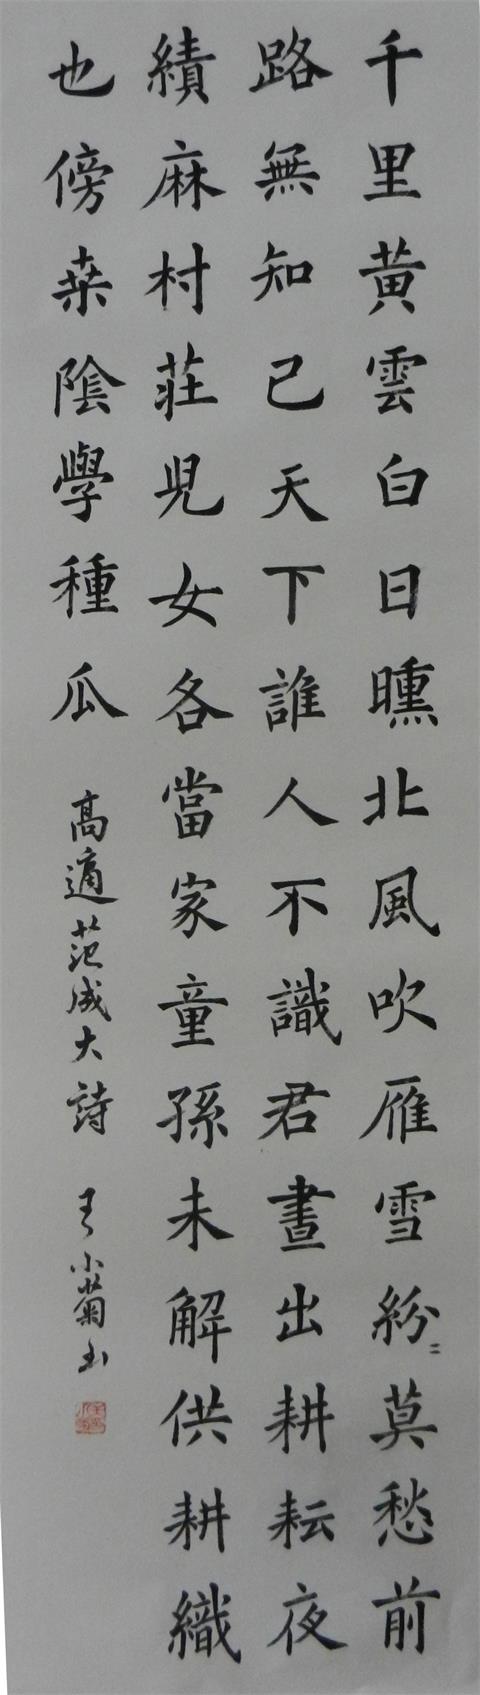 千里黄雲白日曛北風吹雁雪紛〻莫愁前
路無知己天下誰人不識君晝出耕耘夜
績麻村莊児女各當家童孫未解供耕織
也傍桒陰學種瓜 高適范成大詩 王小菊书